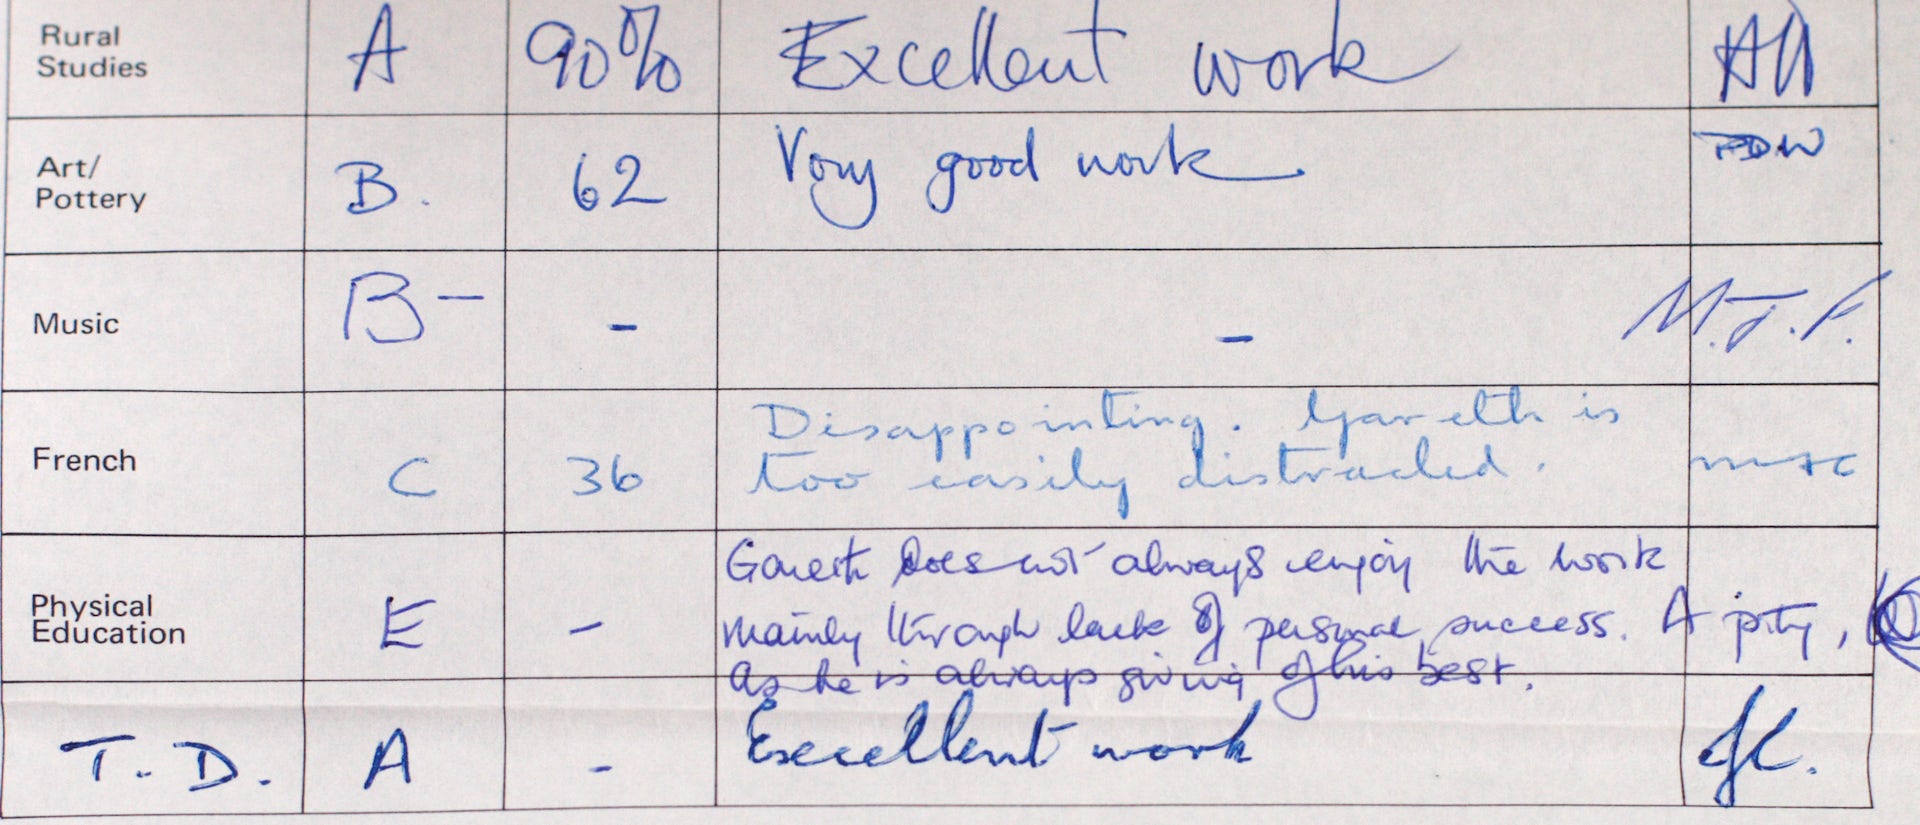 Rural
Studies
A
90%
Excellent work
AH
Art/
Pottery
B.
62
Very good work
PDW
Music
B-
-
-
M.J.P.
French
C
36
Disappointing. Gareth is
too easily distracted.
Physical
Education
E
-
Gareth does not always enjoy the work
mainly through lack of personal success. A pity,
as he is always giving of his best.
T. D.
A
-
Excellent work